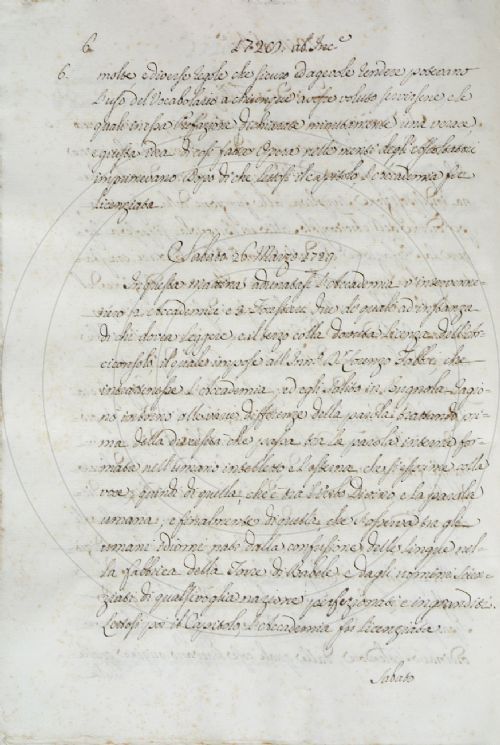 6. 1729. ab Inc.e
6. molte e diverse regole che sicuro ed agevole rendere potevano
l'uso del Vocabolario a chiunque avesse voluto servirsene e le
quali in essa Prefazione dichiarate minutamente una vera
e giusta idea di così fatta Opera nelle menti degli ascoltatori
imprimevano. Dopo di che lettosi il Capitolo l'Accademia fu
licenziata.
E Sabato 26 Marzo 1729.
In questa mattina adunatasi l'Accademia v'interven-
nero Accademici e 3 Forestieri due di quali ad instanza
di chi dovea leggere, e il terzo colla dovuta licenza dell'Ar-
ciconsolo, il quale impose all' Lorenzo che
intrattenesse l'Accademia, ed egli salito in Bugnola ragio-
nò intorno alle varie differenze della parola trattando pri-
ma della diversità che passa tra la parola interna for-
mata nell'umano intelletto e l'esterna che si esprime colla
voce; quindi di quella, che è tra il Verbo Divino e la parola
umana; e finalmente di quella, che si osserva tra gli
umani idiomi nati dalla confusione delle lingue nel-
la fabbrica della Torre di Babele, e dagli uomini Scien-
ziati di qualsivoglia nazione perfezionati e ingranditi.
Lettosi poi il Capitolo l'Accademia fu licenziata.
Sabato